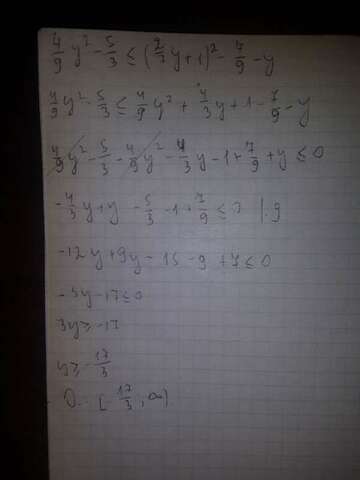 4/9 y² - 5/3 ≤ (2/3 y + 1)² - 7/9 - y
4/9 y² - 5/3 ≤ 4/9 y² + 4/3 y + 1 - 7/9 - y
4/9 y² - 5/3 - 4/9 y² - 4/3 y - 1 + 7/9 + y ≤ 0
-4/3 y + y - 5/3 - 1 + 7/9 ≤ 0 |·9
-12y + 9y - 15 - 9 + 7 ≤ 0
-3y - 17 ≤ 0
3y ≥ -17
y ≥ -17/3
O. [-17/3, ∞)